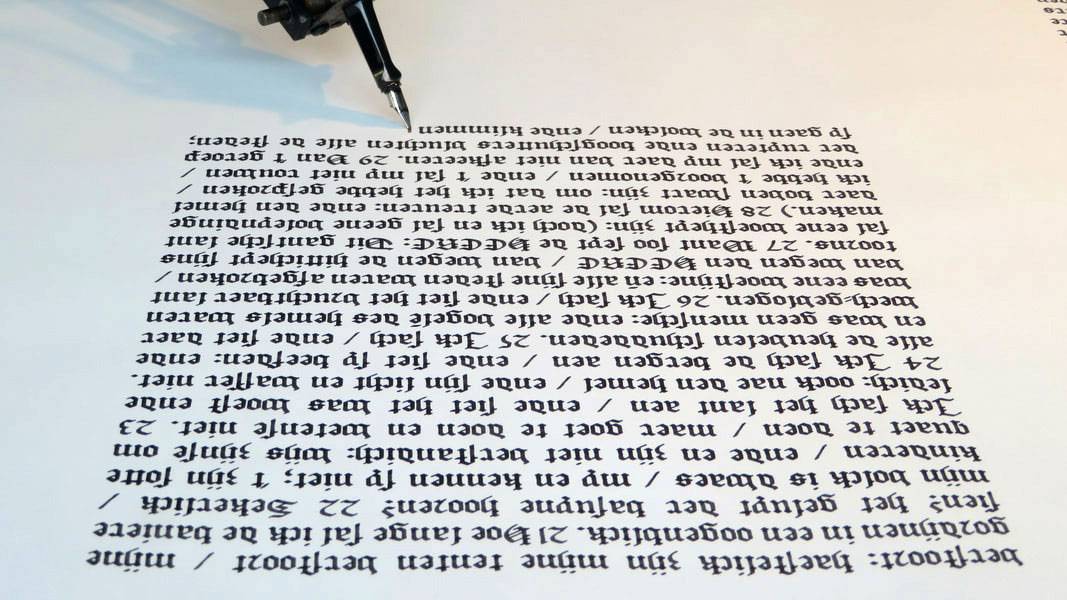 verstoort: haestelick zijn mijne tenten verstoort / mijne
gordijnen in een oogenblick. 21 Hoe lange sal ick de baniere
sien? het geluyt der basuyne hooren? 22 Sekerlick /
mijn volck is dwaes / my en kennen sy niet; 't zijn sotte
kinderen / ende en zijn niet verstandich: wijs zijnse om
quaet te doen / maer goet te doen en wetense niet. 23
Ick sach het lant aen / ende siet het was woest ende
ledich: oock nae den hemel / ende sijn licht en wasser niet.
24 Ick sach de bergen aen / ende siet sy beefden: ende
alle de heuvelen schuddeden. 25 Ick sach / ende siet daer
en was geen mensche: ende alle vogels des hemels waren
wech-gevlogen. 26 Ick sach / ende siet het vruchtbaer lant
was eene woestijne: en alle sijne steden waren afgebroken /
van wegen den HEERE / van wegen de hitticheyt sijns
toorns. 27 Want soo seyt de HEERE: Dit gantsche lant
sal eene woestheyt zijn: (doch ick en sal geene voleyndinge
maken.) 28 Hierom sal de aerde treuren: ende den hemel
daer boven swart zijn: om dat ick het hebbe gesproken /
ick hebbe 't voorgenomen / ende 't sal my niet rouwen /
ende ick sal my daer van niet afkeeren. 29 Van 't geroep
der ruyteren ende boogschutters vluchten alle de steden;
sy gaen in de wolcken / ende klimmen